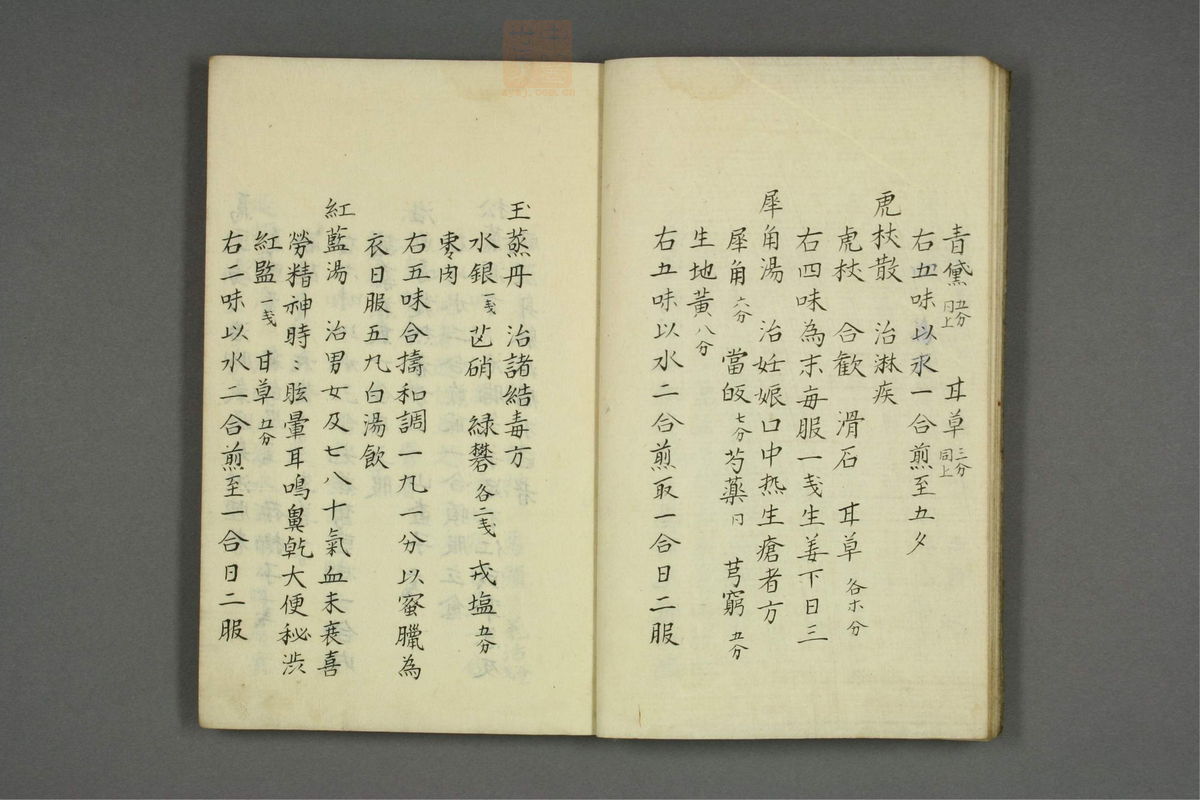 青黛五分同上 甘草三分同上
右五味以水一合煎至五夕
虎杖散 治淋疾
虎杖 合歓 滑石 甘草各小分
右四味為末毎服一戔生姜下日三
犀角湯 治妊娠口中热生瘡者方
犀角六分 當皈七分 芍薬同 芎窮五分
生地黄八分
右五味以水二合煎取一合日二服
玉蒸丹 治諸結毒方
水銀一戔 芒硝 緑礬各二戔 戎塩五分
棗肉
右五味合擣和調一丸一分以蜜臘為
衣日服五丸白湯飲
紅藍湯 治男女及七八十氣血未衰喜
勞精神時〻眩暈耳鳴鼻乾大便秘渋
紅藍一戔 甘草五分
右二味以水二合煎至一合日二服